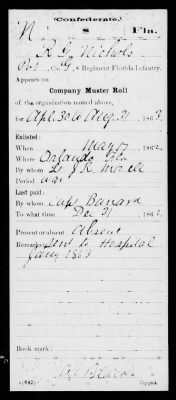 (Confederate.)
N 8 Fla.
R. G. Nichols
Pvt Co. G, 8 Regiment Florida Infantry.
Appears on
Company Muster Roll
of the organization named above,
for Apl 30 to Aug 31, 1863.
Enlisted:
When May 17, 1862
Where Orlando Fla
By whom Lt J. R.
Period war
Last paid:
By whom Capt
To what time Dec 31, 1862.
Present or absent Absent
Remarks: Sent to Hospital
Jany 1863
Book mark:
(642) Copyist.